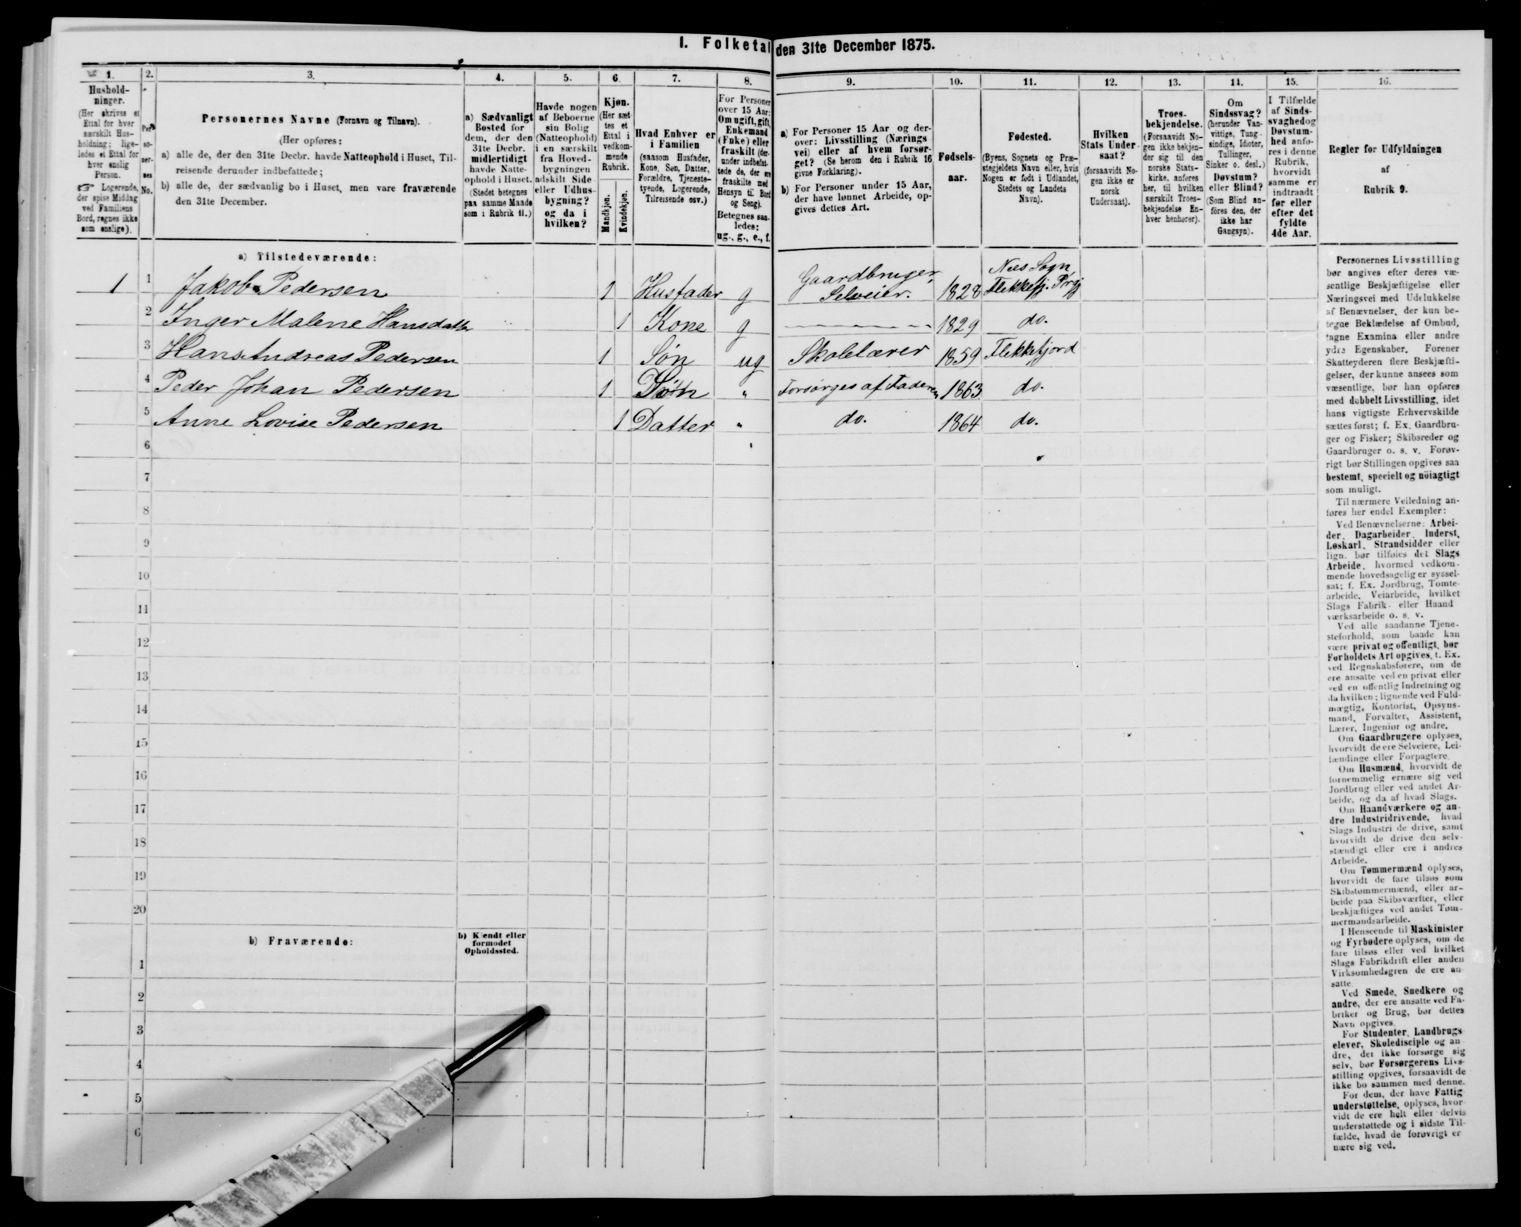 I. Folketal den 31te December 1875.
1. 2. 3. 4. 5. 6. 7. 8. 9. 10. 11. 12. 13. 14. 15. 16.
Hushold-
ninger.
(Her skrives et
Ettal for hver
særskilt Hus-
holdning; lige-
ledes et Ettal for
hver enslig
Person.
☞ Logerende,
der spise Middag
ved Familiens
Bord, regnes ikke
som enslige).
Per-
so-
ner-
nes
No.
Personernes Navne (Fornavn og Tilnavn).
(Her opføres:
a) alle de, der den 31te Decbr. havde Natteophold i Huset, Til-
reisende derunder indbefattede;
b) alle de, der sædvanlig bo i Huset, men vare fraværende
den 31te December.
a) Sædvanligt
Bosted for
dem, der den
31te Decbr.
midlertidigt
havde Natte-
ophold i Huset.
(Stedet betegnes
paa samme Maade
som i Rubrik 11.)
Havde nogen
af Beboerne
sin Bolig
(Natteophold)
i en særskilt
fra Hoved-
bygningen
adskilt Side-
eller Udhus-
bygning?
og da i
hvilken?
Kjøn.
(Her sæt-
tes et
Ettal i
vedkom-
mende
Rubrik.
Mandkjøn.
Kvindekjøn.
Hvad Enhver er
i Familien
(saasom Husfader,
Kone, Søn, Datter,
Forældre, Tjeneste-
tyende, Logerende,
Tilreisende osv.)
For Personer
over 15 Aar:
Om ugift, gift,
Enkemand
(Enke) eller
fraskilt (der-
under indbefat-
tede de, der ere
fraskilte med
Hensyn til Bord
og Seng).
Betegnes saa-
ledes:
ug., g., e., f.
a) For Personer 15 Aar og der-
over: Livsstilling (Nærings-
vei) eller af hvem forsør-
get? (Se herom den i Rubrik 16
givne Forklaring).
b) For Personer under 15 Aar,
der have lønnet Arbeide, op-
gives dettes Art.
Fødsels-
aar.
Fødested.
(Byens, Sognets og Præ-
stegjeldets Navn eller, hvis
Nogen er født i Udlandet,
Stedets og Landets
Navn).
Hvilken
Stats Under-
saat?
(forsaavidt No-
gen ikke er
norsk
Undersaat).
Troes-
bekjendelse.
(Forsaavidt No-
gen ikke bekjen-
der sig til den
norske Stats-
kirke, anføres
her, til hvilken
særskilt Troes-
bekjendelse En-
hver henhører).
Om
Sindssvag?
(herunder Van-
vittige, Tung-
sindige, Idioter,
Tullinger,
Sinker o. desl.)
Døvstum?
eller Blind?
(Som Blind an-
føres den, der
ikke har
Gangsyn).
I Tilfælde
af Sinds-
svaghed og
Døvstum-
hed anfø-
res i denne
Rubrik,
hvorvidt
samme er
indtraadt
før eller
efter det
fyldte
4de Aar.
Regler for Udfyldningen
af
Rubrik 9.
a) Tilstedeværende:
1 1 Jakob Pedersen 1 Husfader g Gaardbruger, Selveier. 1828 Nes Sogn, Flekkefj. Prgj
2 Inger Malene Hansdatter 1 Kone g 1829 do.
3 Hans Andreas Pedersen 1 Søn ug Skolelærer 1859 Flekkefjord
4 Peder Johan Pedersen 1 Søn " Forsørges af Faderen 1863 do.
5 Anne Lovise Pedersen 1 Datter " do. 1864 do.
6
7
8
9
10
11
12
13
14
15
16
17
18
19
20
b) Fraværende:
b) Kjendt eller
formodet
Opholdssted.
1
2
3
4
5
6
Personernes Livsstilling
bør angives efter deres væ-
sentlige Beskjæftigelse eller
Næringsvei med Udelukkelse
af Benævnelser, der kun be-
tegne Beklædelse af Ombud,
tagne Examina eller andre
ydre Egenskaber. Forener
Skatteyderen flere Beskjæfti-
gelser, der kunne ansees som
væsentlige, bør han opføres
med dobbelt Livsstilling, idet
hans vigtigste Erhvervskilde
sættes først; f. Ex. Gaardbru-
ger og Fisker; Skibsreder og
Gaardbruger o. s. v. Forøv-
rigt bør Stillingen opgives saa
bestemt, specielt og nøiagtigt
som muligt.
Til nærmere Veiledning an-
føres her endel Exempler:
Ved Benævnelserne: Arbei-
der, Dagarbeider, Inderst,
Løskarl, Strandsidder eller
lign. bør tilføies det Slags
Arbeide, hvormed vedkom-
mende hovedsagelig er syssel-
sat; f. Ex. Jordbrug, Tomte-
arbeide, Veiarbeide, hvilket
Slags Fabrik- eller Haand-
værksarbeide o. s. v.
Ved alle saadanne Tjene-
steforhold, som baade kan
være privat og offentligt, bør
Forholdets Art opgives, f. Ex.
ved Regnskabsførere, om de
ere ansatte ved en privat eller
ved en offentlig Indretning og
da hvilken; lignende ved Fuld-
mægtig, Kontorist, Opsyns-
mand, Forvalter, Assistent,
Lærer, Ingeniør og andre.
Om Gaardbrugere oplyses,
hvorvidt de ere Selveiere, Lei-
lændinge eller Forpagtere.
Om Husmænd, hvorvidt de
fornemmelig ernære sig ved
Jordbrug eller ved andet Ar-
beide, og da af hvad Slags.
Om Haandværkere og an-
dre Industridrivende, hvad
Slags Industri de drive, samt
hvorvidt de drive den selv-
stændigt eller ere i andres
Arbeide.
Om Tømmermænd oplyses,
hvorvidt de fare tilsøs som
Skibstømmermænd, eller ar-
beide paa Skibsværfter, eller
beskjæftiges ved andet Tøm-
mermandsarbeide.
I Henseende til Maskinister
og Fyrbødere oplyses, om de
fare tilsøs eller ved hvilket
Slags Fabrikdrift eller anden
Virksomhedsgren de ere an-
satte.
Ved Smede, Snedkere og
andre, der ere ansatte ved Fa-
briker og Brug, bør dettes
Navn opgives.
For Studenter, Landbrugs-
elever, Skoledisciple og an-
dre, der ikke forsørge sig
selv, bør Forsørgerens Livs-
stilling opgives, forsaavidt de
ikke bo sammen med denne.
For dem, der have Fattig-
understøttelse, oplyses, hvor-
vidt de ere helt eller delvis
understøttede og i sidste Til-
fælde, hvad de forøvrigt er-
nære sig ved.